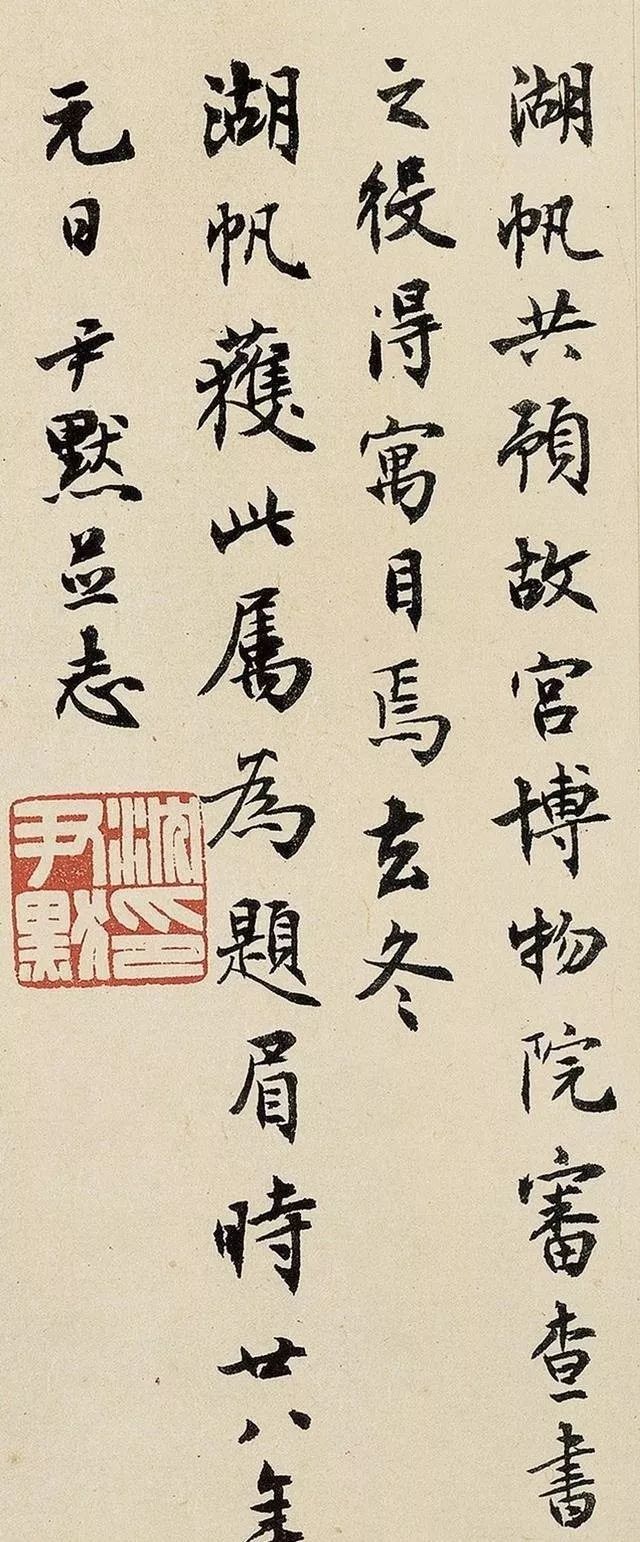 湖帆共預故宮博物院審查書
之役得寓目焉去冬
湖帆獲此屬為題眉時廿八年
元日尹默並志
沈尹默印